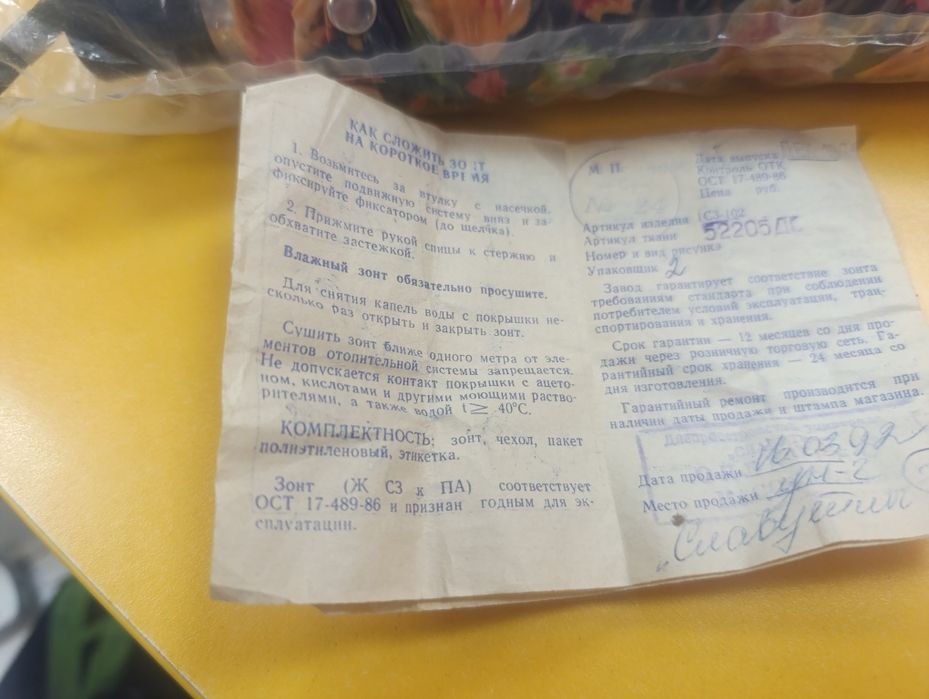 КАК СЛОЖИТЬ ЗОНТ
НА КОРОТКОЕ ВРЕМЯ
1. Возьмитесь за втулку с насечкой,
опустите подвижную систему вниз и за-
фиксируйте фиксатором (до щелчка).
2. Прижмите рукой спицы к стержню и
обхватите застежкой.
Влажный зонт обязательно просушите.
Для снятия капель воды с покрышки не-
сколько раз открыть и закрыть зонт.
Сушить зонт ближе одного метра от эле-
ментов отопительной системы запрещается.
Не допускается контакт покрышки с ацето-
ном, кислотами и другими моющими раство-
рителями, а также водой t ≥ 40°С.
КОМПЛЕКТНОСТЬ: зонт, чехол, пакет
полиэтиленовый, этикетка.
Зонт (Ж СЗ к ПА) соответствует
ОСТ 17-489-86 и признан годным для эк-
сплуатации.
М. П.
Дата выпуска
Контроль ОТК
ОСТ 17-489-86
Цена руб.
Артикул изделия СЗ-102
Артикул ткани 52205ДС
Номер и вид рисунка
Упаковщик 2
Завод гарантирует соответствие зонта
требованиям стандарта при соблюдении
потребителем условий эксплуатации, тран-
спортирования и хранения.
Срок гарантии — 12 месяцев со дня про-
дажи через розничную торговую сеть. Га-
рантийный срок хранения — 24 месяца со
дня изготовления.
Гарантийный ремонт производится при
наличии даты продажи и штампа магазина.
Дата продажи 16.03.92
Место продажи
„Славутич